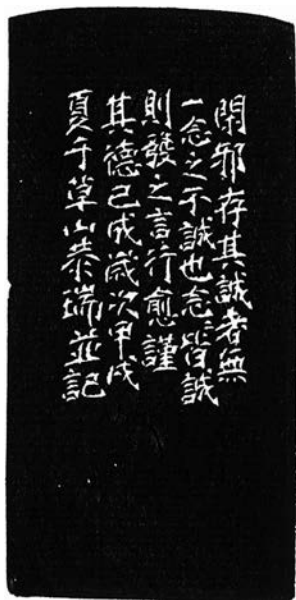 閑邪存其誠者無
一念之不誠也念念皆誠
則發之言行愈謹
其德已成歲次甲戌
夏于草山恭瑞並記